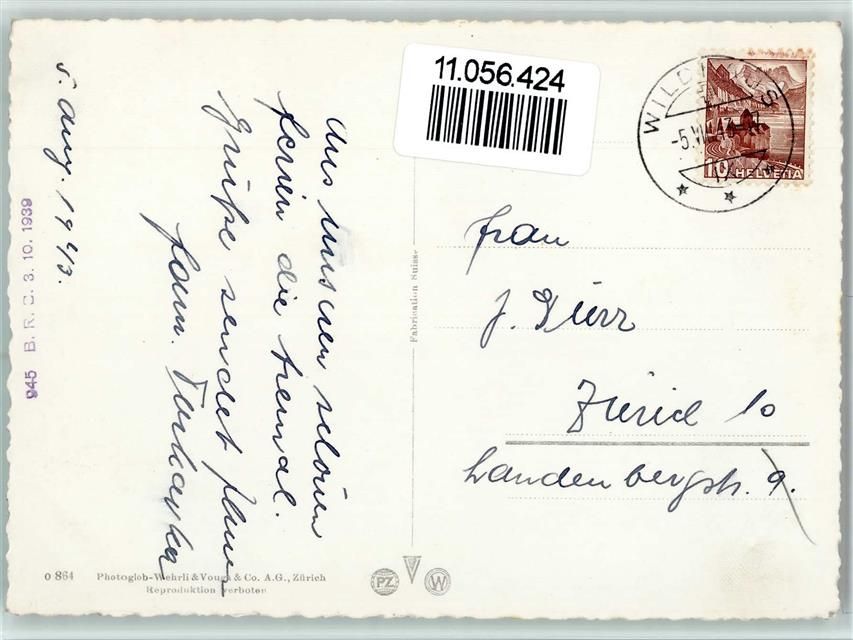 5. Aug. 1943.
Aus unseren schönen
Ferien die tiemal.
Grüße sendet Ihnen
Fam.
945 B. R. C. 3. 10. 1939
11.056.424
WILDHAUS
-5.VIII.43
10
HELVETIA
Frau
J. Dürr
Zürich 10
Landenbergstr. 9.
Fabrication Suisse
o 864 Photoglob-Wehrli & Vouga & Co. A.G., Zürich
Reproduktion verboten
PZ
W